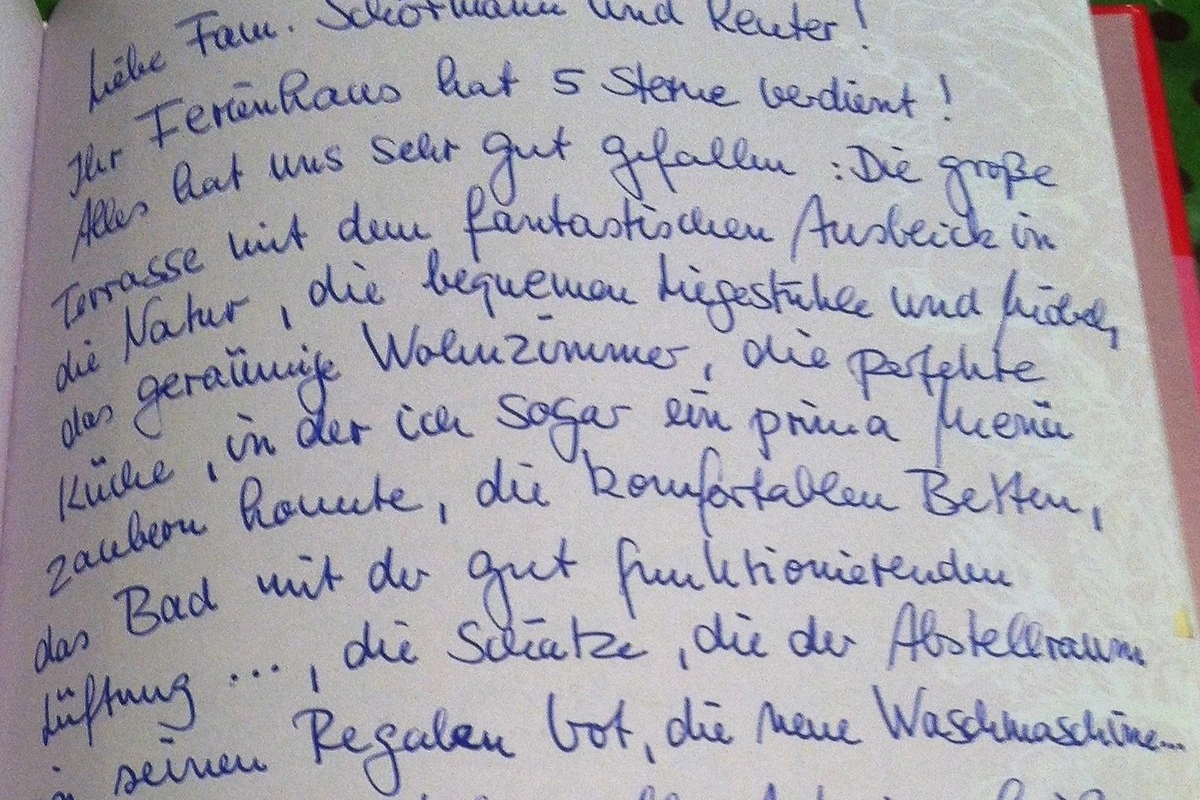 Liebe Fam. Schötmann und Reuter!
Ihr Ferienhaus hat 5 Sterne verdient!
Alles hat uns sehr gut gefallen: Die große
Terrasse mit dem fantastischen Ausblick in
die Natur, die bequemen Liegestühle und
das geräumige Wohnzimmer, die perfekte
Küche, in der ich sogar ein prima Menü
zaubern konnte, die komfortablen Betten,
das Bad mit der gut funktionierenden
Lüftung ..., die Schätze, die der Abstellraum
in seinen Regalen bot, die neue Waschmaschine...